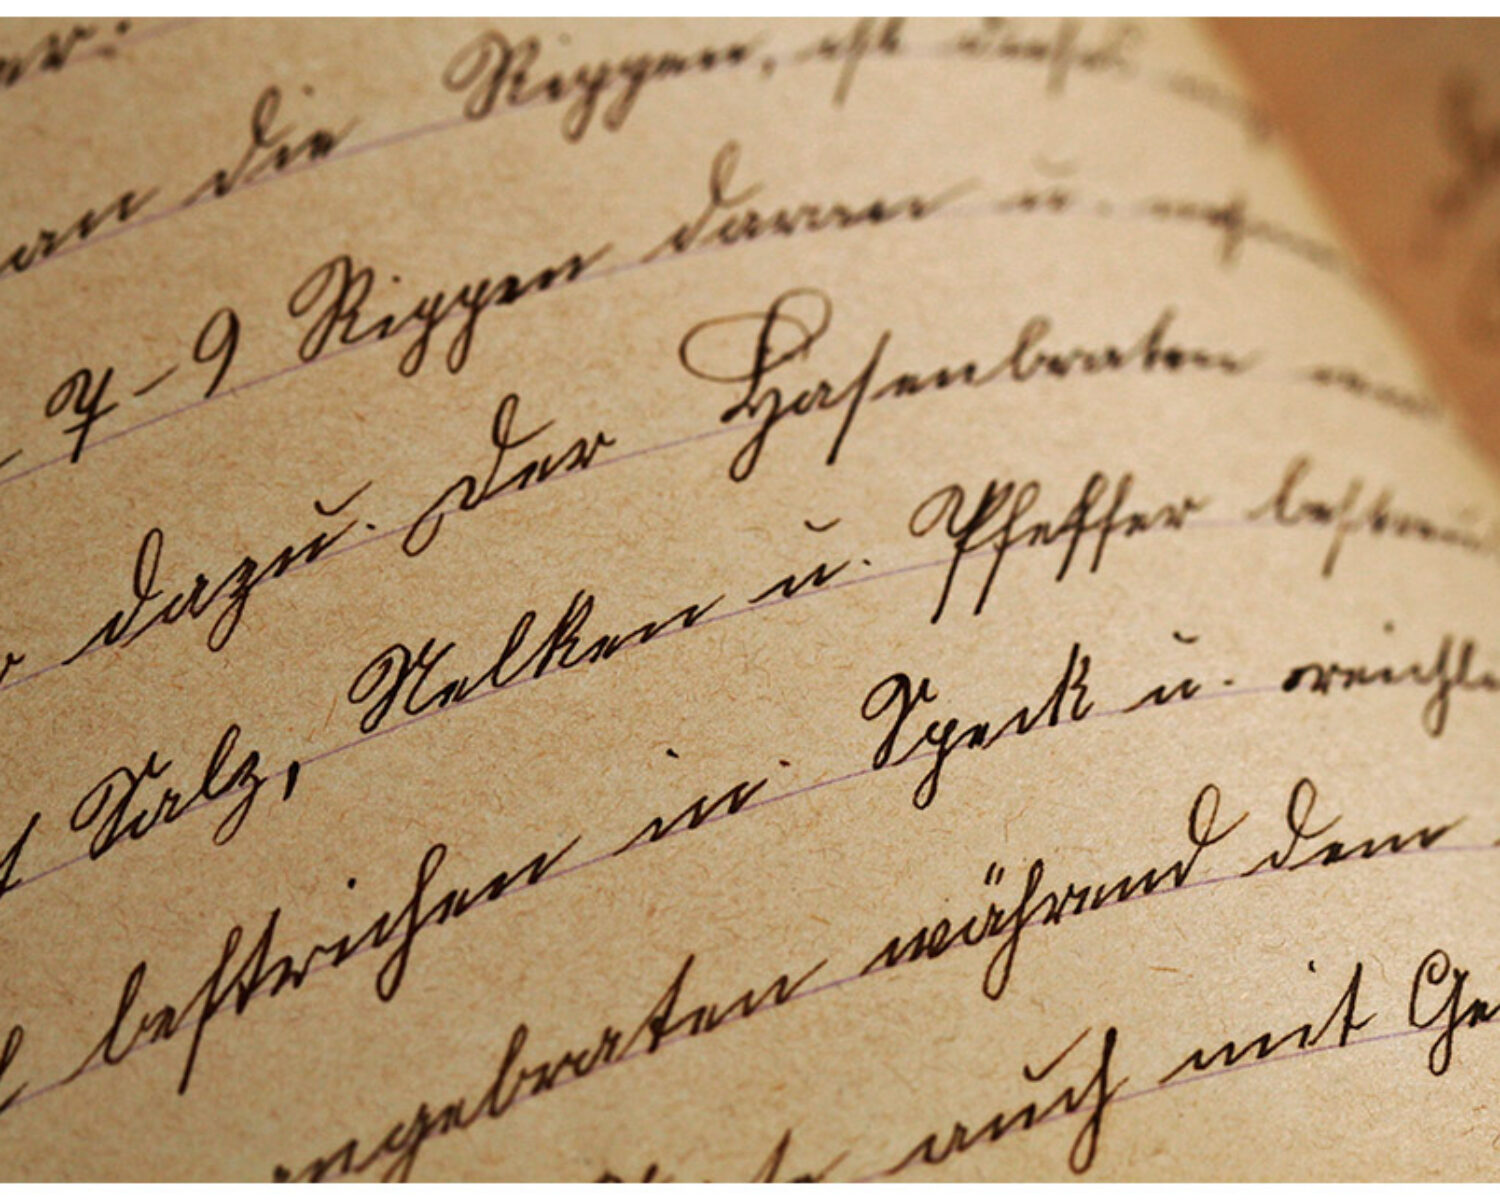 an die Rippen, ist dieses
7-9 Rippen daran u.
dazu. Der Hasenbraten
Salz, Nelken u. Pfeffer
bestrichen in Speck u.
angebraten während dem
auch mit Ge